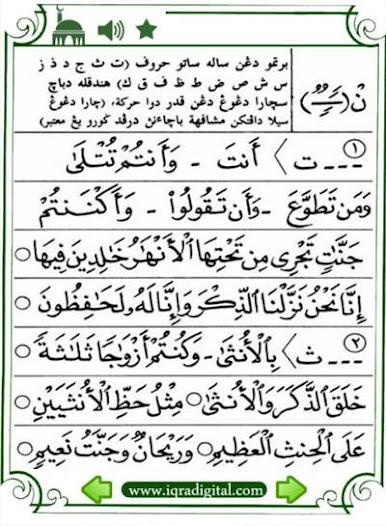 نْ (ـًـٍـٌ)
برتمو دڠن ساله ساتو حروف (ت ث ج د ذ ز
س ش ص ض ط ظ ف ق ك) هندقله دباچ
سچارا دڠوڠ دڠن قدر دوا حركة، (چارا دڠوڠ
سيلا دافتکن مشافهة باچاءنڽ درڤد ݢورو يڠ معتبر)
١ ـ ـ ـ ت 〉 أَنتَ - وَأَنتُمْ تُتْلَىٰ
وَمَن تَطَوَّعَ - وَأَن تَقُولُوا۟ - وَأَكْنَنتُمْ
جَنَّـٰتٍ تَجْرِى مِن تَحْتِهَا ٱلْأَنْهَـٰرُ خَـٰلِدِينَ فِيهَا ○
إِنَّا نَحْنُ نَزَّلْنَا ٱلذِّكْرَ وَإِنَّا لَهُۥ لَحَـٰفِظُونَ ○
٢ ـ ـ ـ ث 〉 بِٱلْأُنثَىٰ - وَكُنتُمْ أَزْوَٰجًا ثَلَـٰثَةً ○
خَلَقَ ٱلذَّكَرَ وَٱلْأُنثَىٰ ○ مِثْلُ حَظِّ ٱلْأُنثَيَيْنِ ○
عَلَى ٱلْحِنثِ ٱلْعَظِيمِ ○ وَرَيْحَانٌ وَجَنَّتُ نَعِيمٍ ○
www.iqradigital.com